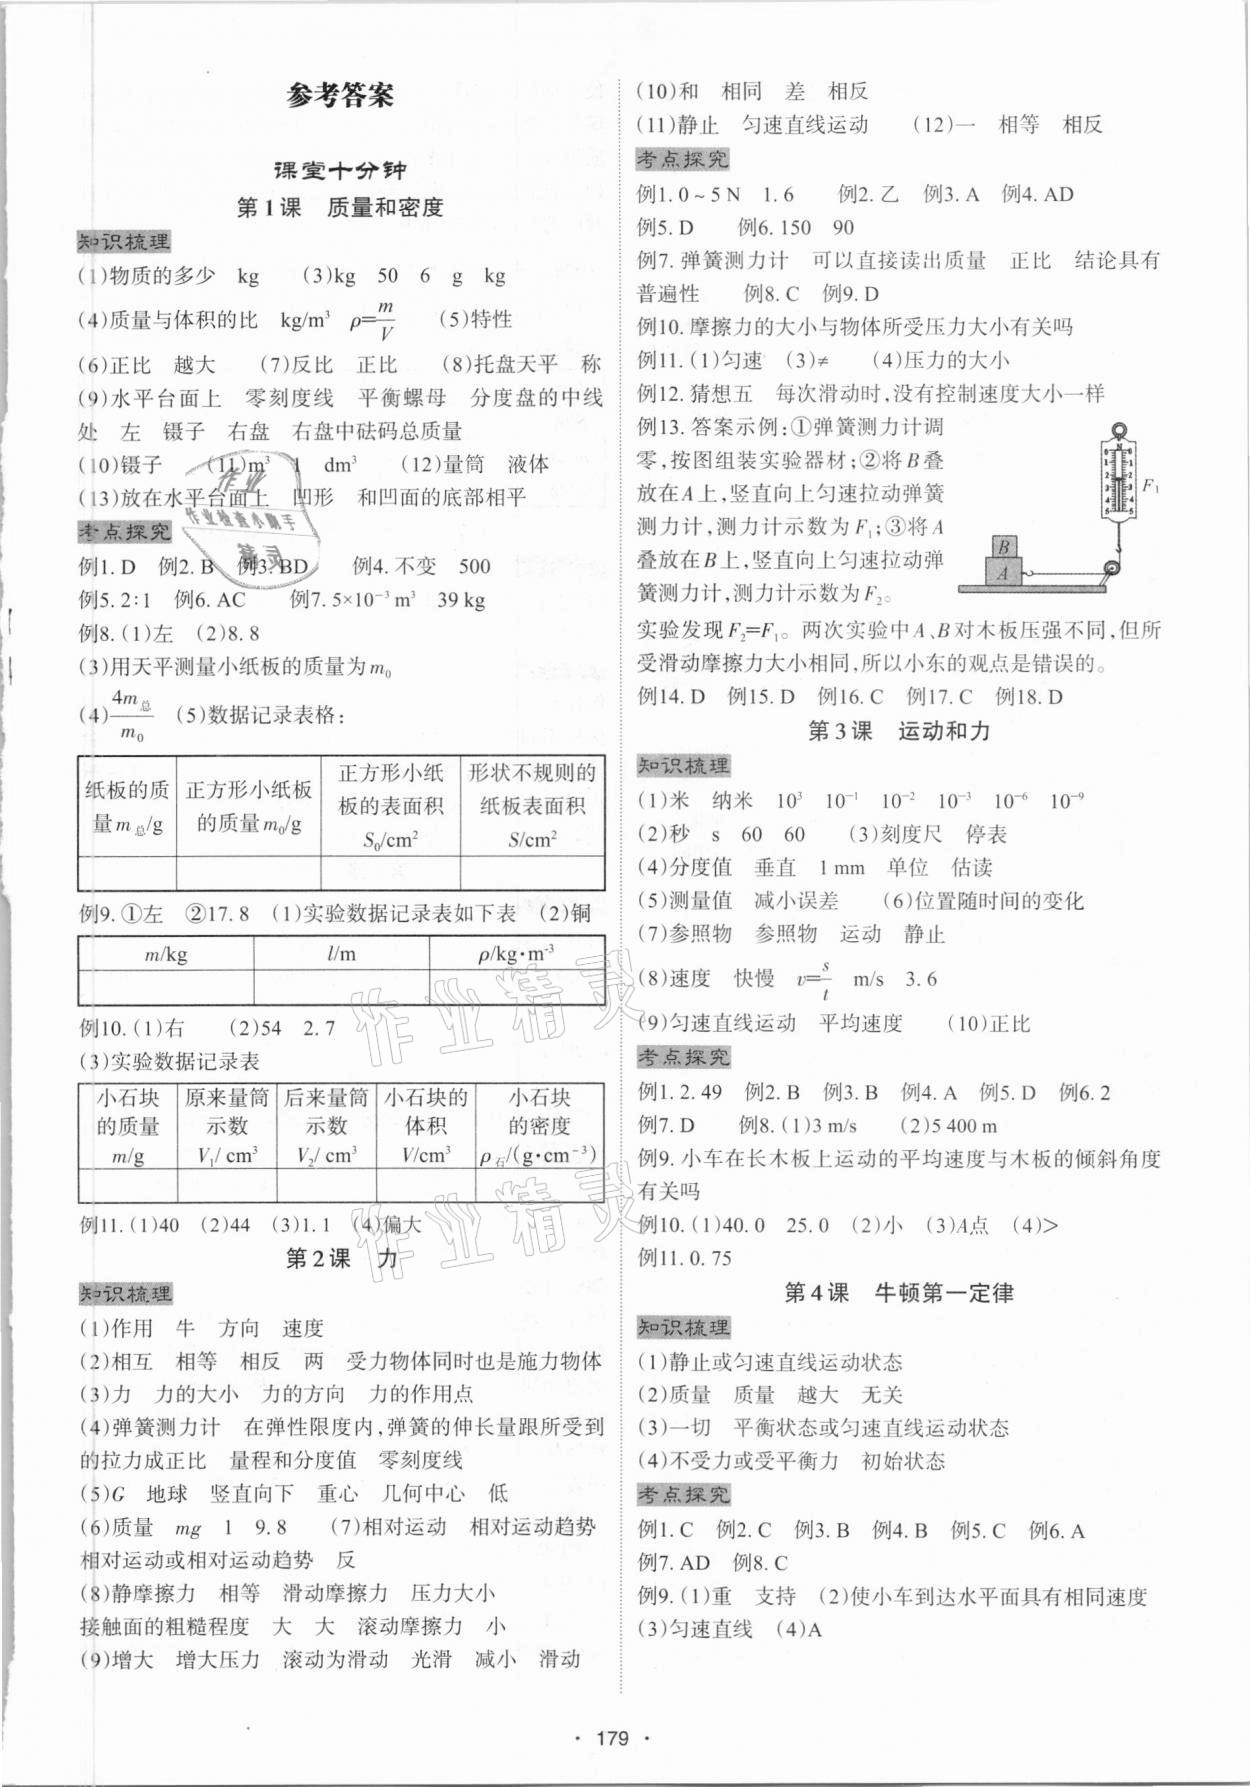 参考答案
课堂十分钟
第1课　质量和密度
知识梳理
(1)物质的多少　kg　　(3)kg　50　6　g　kg
(4)质量与体积的比　kg/m³　ρ=m/V　　(5)特性
(6)正比　越大　　(7)反比　正比　　(8)托盘天平　称
(9)水平台面上　零刻度线　平衡螺母　分度盘的中线
处　左　镊子　右盘　右盘中砝码总质量
(10)镊子　　(11)m³　1　dm³　　(12)量筒　液体
(13)放在水平台面上　凹形　和凹面的底部相平
考点探究
例1. D　例2. B　例3. BD　　例4. 不变　500
例5. 2∶1　例6. AC　　例7. 5×10⁻³ m³　39 kg
例8. (1)左　(2)8.8
(3)用天平测量小纸板的质量为m₀
(4)4m总/m₀　(5)数据记录表格：
纸板的质量m总/g　正方形小纸板的质量m₀/g　正方形小纸板的表面积S₀/cm²　形状不规则的纸板表面积S/cm²
例9. ①左　②17.8　(1)实验数据记录表如下表　(2)铜
m/kg　l/m　ρ/kg·m⁻³
例10. (1)右　　(2)54　2.7
(3)实验数据记录表
小石块的质量m/g　原来量筒示数V₁/cm³　后来量筒示数V₂/cm³　小石块的体积V/cm³　小石块的密度ρ石/(g·cm⁻³)
例11. (1)40　(2)44　(3)1.1　(4)偏大
第2课　力
知识梳理
(1)作用　牛　方向　速度
(2)相互　相等　相反　两　受力物体同时也是施力物体
(3)力　力的大小　力的方向　力的作用点
(4)弹簧测力计　在弹性限度内,弹簧的伸长量跟所受到
的拉力成正比　量程和分度值　零刻度线
(5)G　地球　竖直向下　重心　几何中心　低
(6)质量　mg　1　9.8　　(7)相对运动　相对运动趋势
相对运动或相对运动趋势　反
(8)静摩擦力　相等　滑动摩擦力　压力大小
接触面的粗糙程度　大　大　滚动摩擦力　小
(9)增大　增大压力　滚动为滑动　光滑　减小　滑动
(10)和　相同　差　相反
(11)静止　匀速直线运动　　(12)一　相等　相反
考点探究
例1. 0～5 N　1.6　　例2. 乙　例3. A　例4. AD
例5. D　　例6. 150　90
例7. 弹簧测力计　可以直接读出质量　正比　结论具有
普遍性　　例8. C　例9. D
例10. 摩擦力的大小与物体所受压力大小有关吗
例11. (1)匀速　(3)≠　　(4)压力的大小
例12. 猜想五　每次滑动时,没有控制速度大小一样
例13. 答案示例：①弹簧测力计调
零,按图组装实验器材；②将B叠
放在A上,竖直向上匀速拉动弹簧
测力计,测力计示数为F₁；③将A
叠放在B上,竖直向上匀速拉动弹
簧测力计,测力计示数为F₂。
N
0　0
1　1
2　2
3　3
4　4
5　5
F₁
B
A
实验发现F₂=F₁。两次实验中A、B对木板压强不同,但所
受滑动摩擦力大小相同,所以小东的观点是错误的。
例14. D　例15. D　例16. C　例17. C　例18. D
第3课　运动和力
知识梳理
(1)米　纳米　10³　10⁻¹　10⁻²　10⁻³　10⁻⁶　10⁻⁹
(2)秒　s　60　60　　(3)刻度尺　停表
(4)分度值　垂直　1 mm　单位　估读
(5)测量值　减小误差　　(6)位置随时间的变化
(7)参照物　参照物　运动　静止
(8)速度　快慢　v=s/t　m/s　3.6
(9)匀速直线运动　平均速度　　(10)正比
考点探究
例1. 2.49　例2. B　例3. B　例4. A　例5. D　例6. 2
例7. D　　例8. (1)3 m/s　　(2)5 400 m
例9. 小车在长木板上运动的平均速度与木板的倾斜角度
有关吗
例10. (1)40.0　25.0　(2)小　(3)A点　(4)>
例11. 0.75
第4课　牛顿第一定律
知识梳理
(1)静止或匀速直线运动状态
(2)质量　质量　越大　无关
(3)一切　平衡状态或匀速直线运动状态
(4)不受力或受平衡力　初始状态
考点探究
例1. C　例2. C　例3. B　例4. B　例5. C　例6. A
例7. AD　例8. C
例9. (1)重　支持　(2)使小车到达水平面具有相同速度
(3)匀速直线　(4)A
作业
作业检查小助手
精灵
作业精灵
作业精灵
· 179 ·